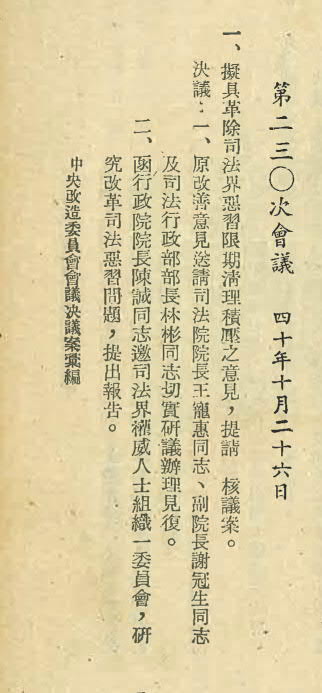 第二三〇次會議　四十年十月二十六日
一、擬具革除司法界惡習限期清理積壓之意見，提請　核議案。
決議：一、原改善意見送請司法院院長王寵惠同志、副院長謝冠生同志
及司法行政部部長林彬同志切實研議辦理見復。
二、函行政院院長陳誠同志邀司法界權威人士組織一委員會，研
究改革司法惡習問題，提出報告。
中央改造委員會會議決議案彙編